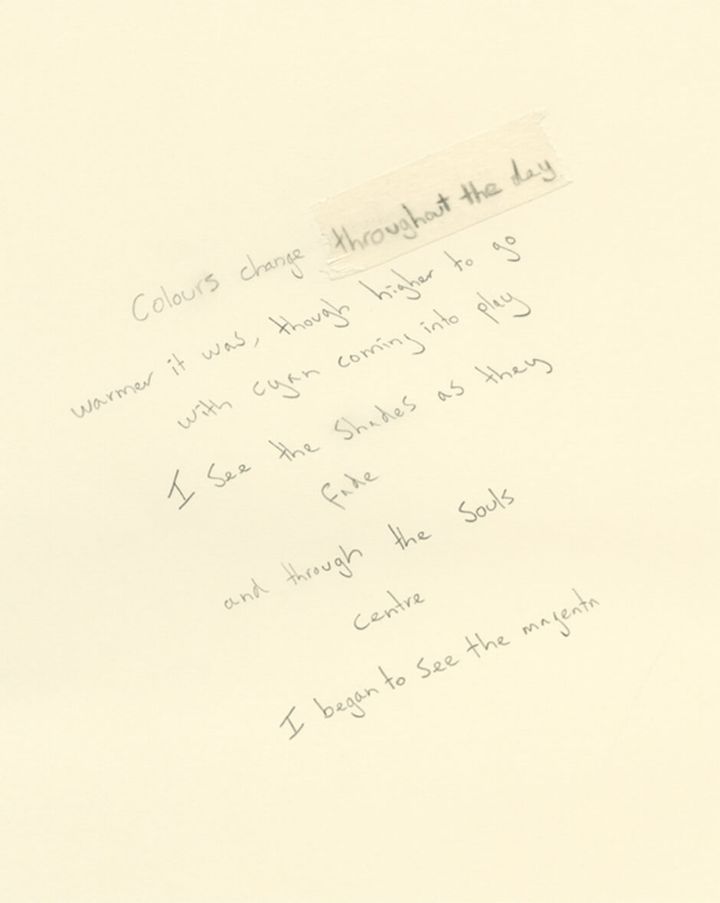 Colours change throughout the day
warmer it was, though higher to go
with cyan coming into play
I see the shades as they
fade
and through the souls
centre
I began to see the magenta